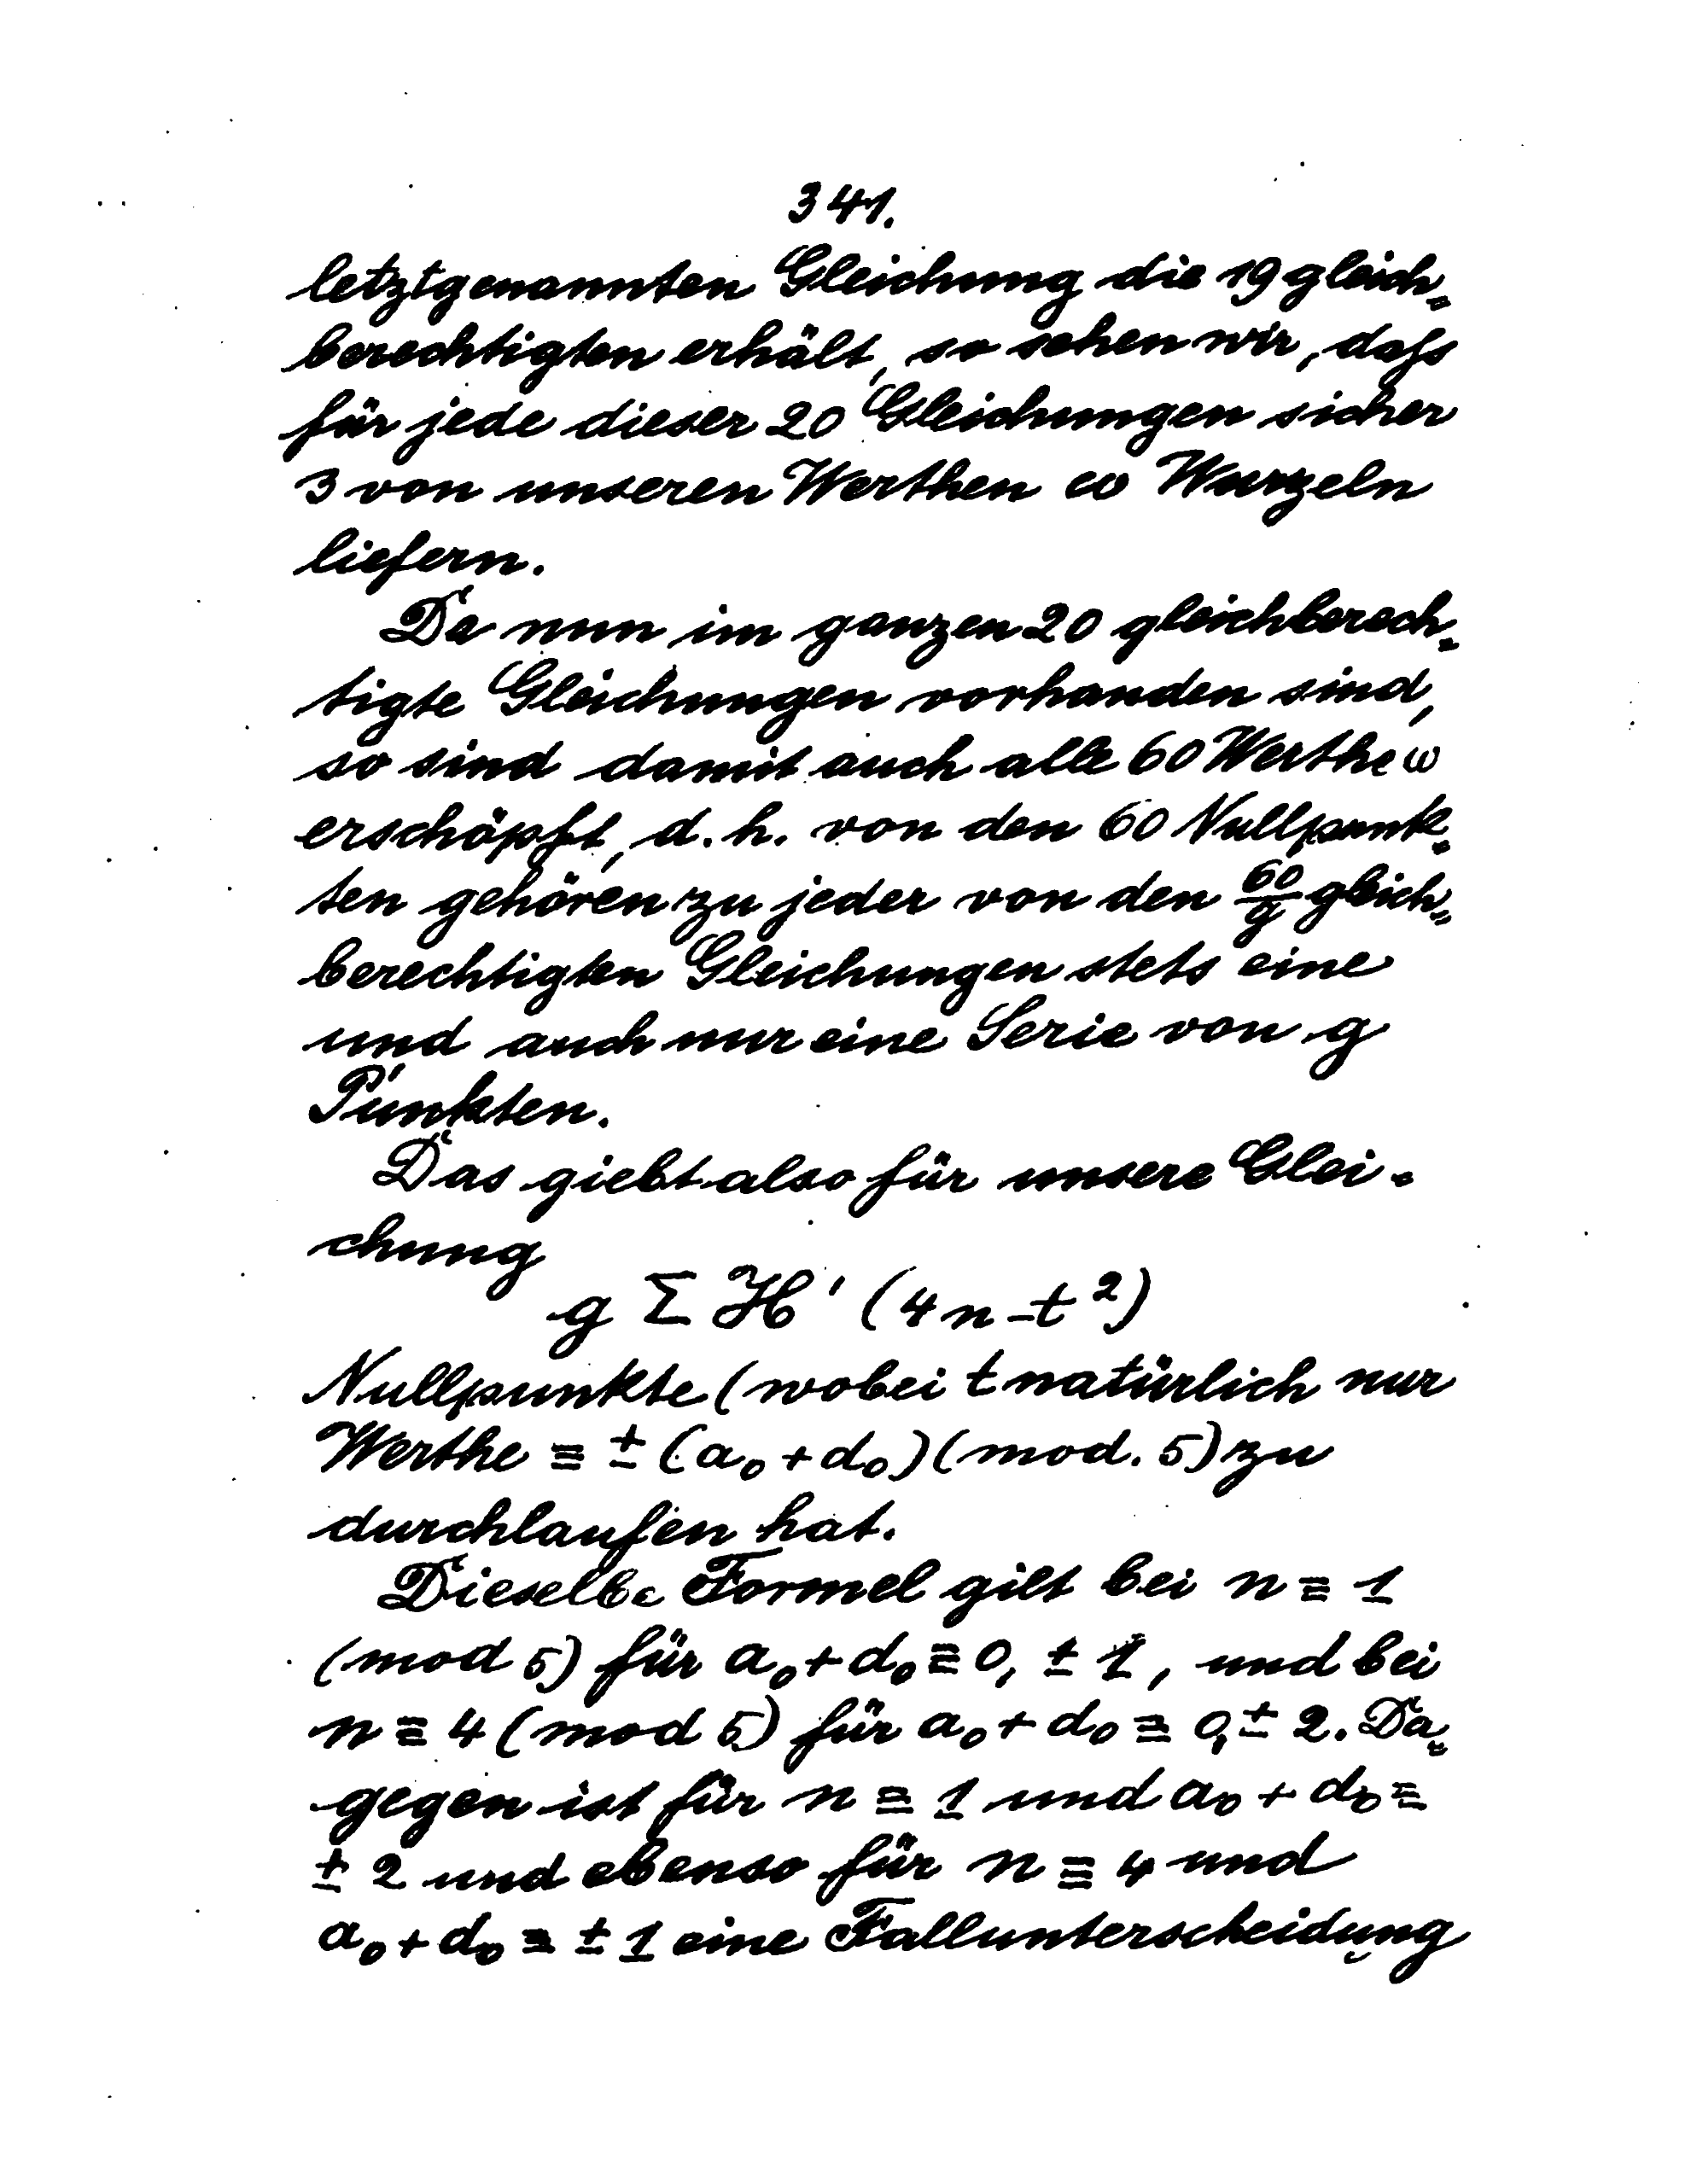 341.
letztgenannten Gleichung die 19 gleich-
berechtigten erhält, so sehen wir, daſs
für jede dieser 20 Gleichungen sicher
3 von unseren Werthen ω Wurzeln
liefern.
Da nun im ganzen 20 gleichberech-
tigte Gleichungen vorhanden sind,
so sind damit auch alle 60 Werthe ω
erschöpft, d. h. von den 60 Nullpunk-
ten gehören zu jeder von den 60/g gleich-
berechtigten Gleichungen stets eine
und auch nur eine Serie von g
Punkten.
Das giebt also für unsere Glei-
chung
g Σ H' (4n - t²)
Nullpunkte (wobei t natürlich nur
Werthe ≡ ± (a₀ + d₀) (mod. 5) zu
durchlaufen hat.
Dieselbe Formel gilt bei n ≡ 1
(mod 5) für a₀ + d₀ ≡ 0, ± 1, und bei
n ≡ 4 (mod 5) für a₀ + d₀ ≡ 0, ± 2. Da-
gegen ist für n ≡ 1 und a₀ + d₀ ≡
± 2 und ebenso für n ≡ 4 und
a₀ + d₀ ≡ ± 1 eine Fallunterscheidung